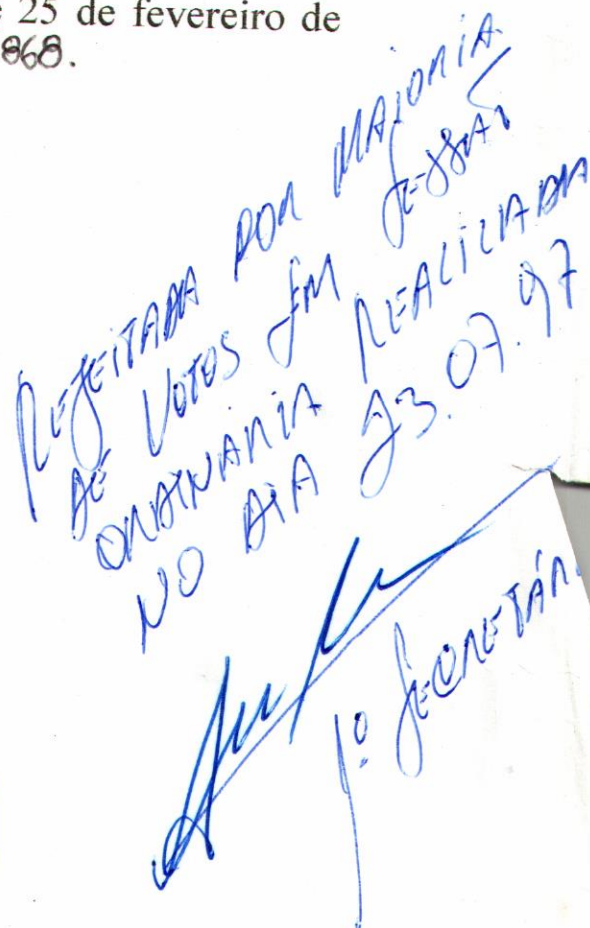 e 25 de fevereiro de
868.
REJEITADA POR MAIORIA
DE VOTOS EM SESSÃO
ORDINÁRIA REALIZADA
NO DIA 23.07.97
1º SECRETÁR